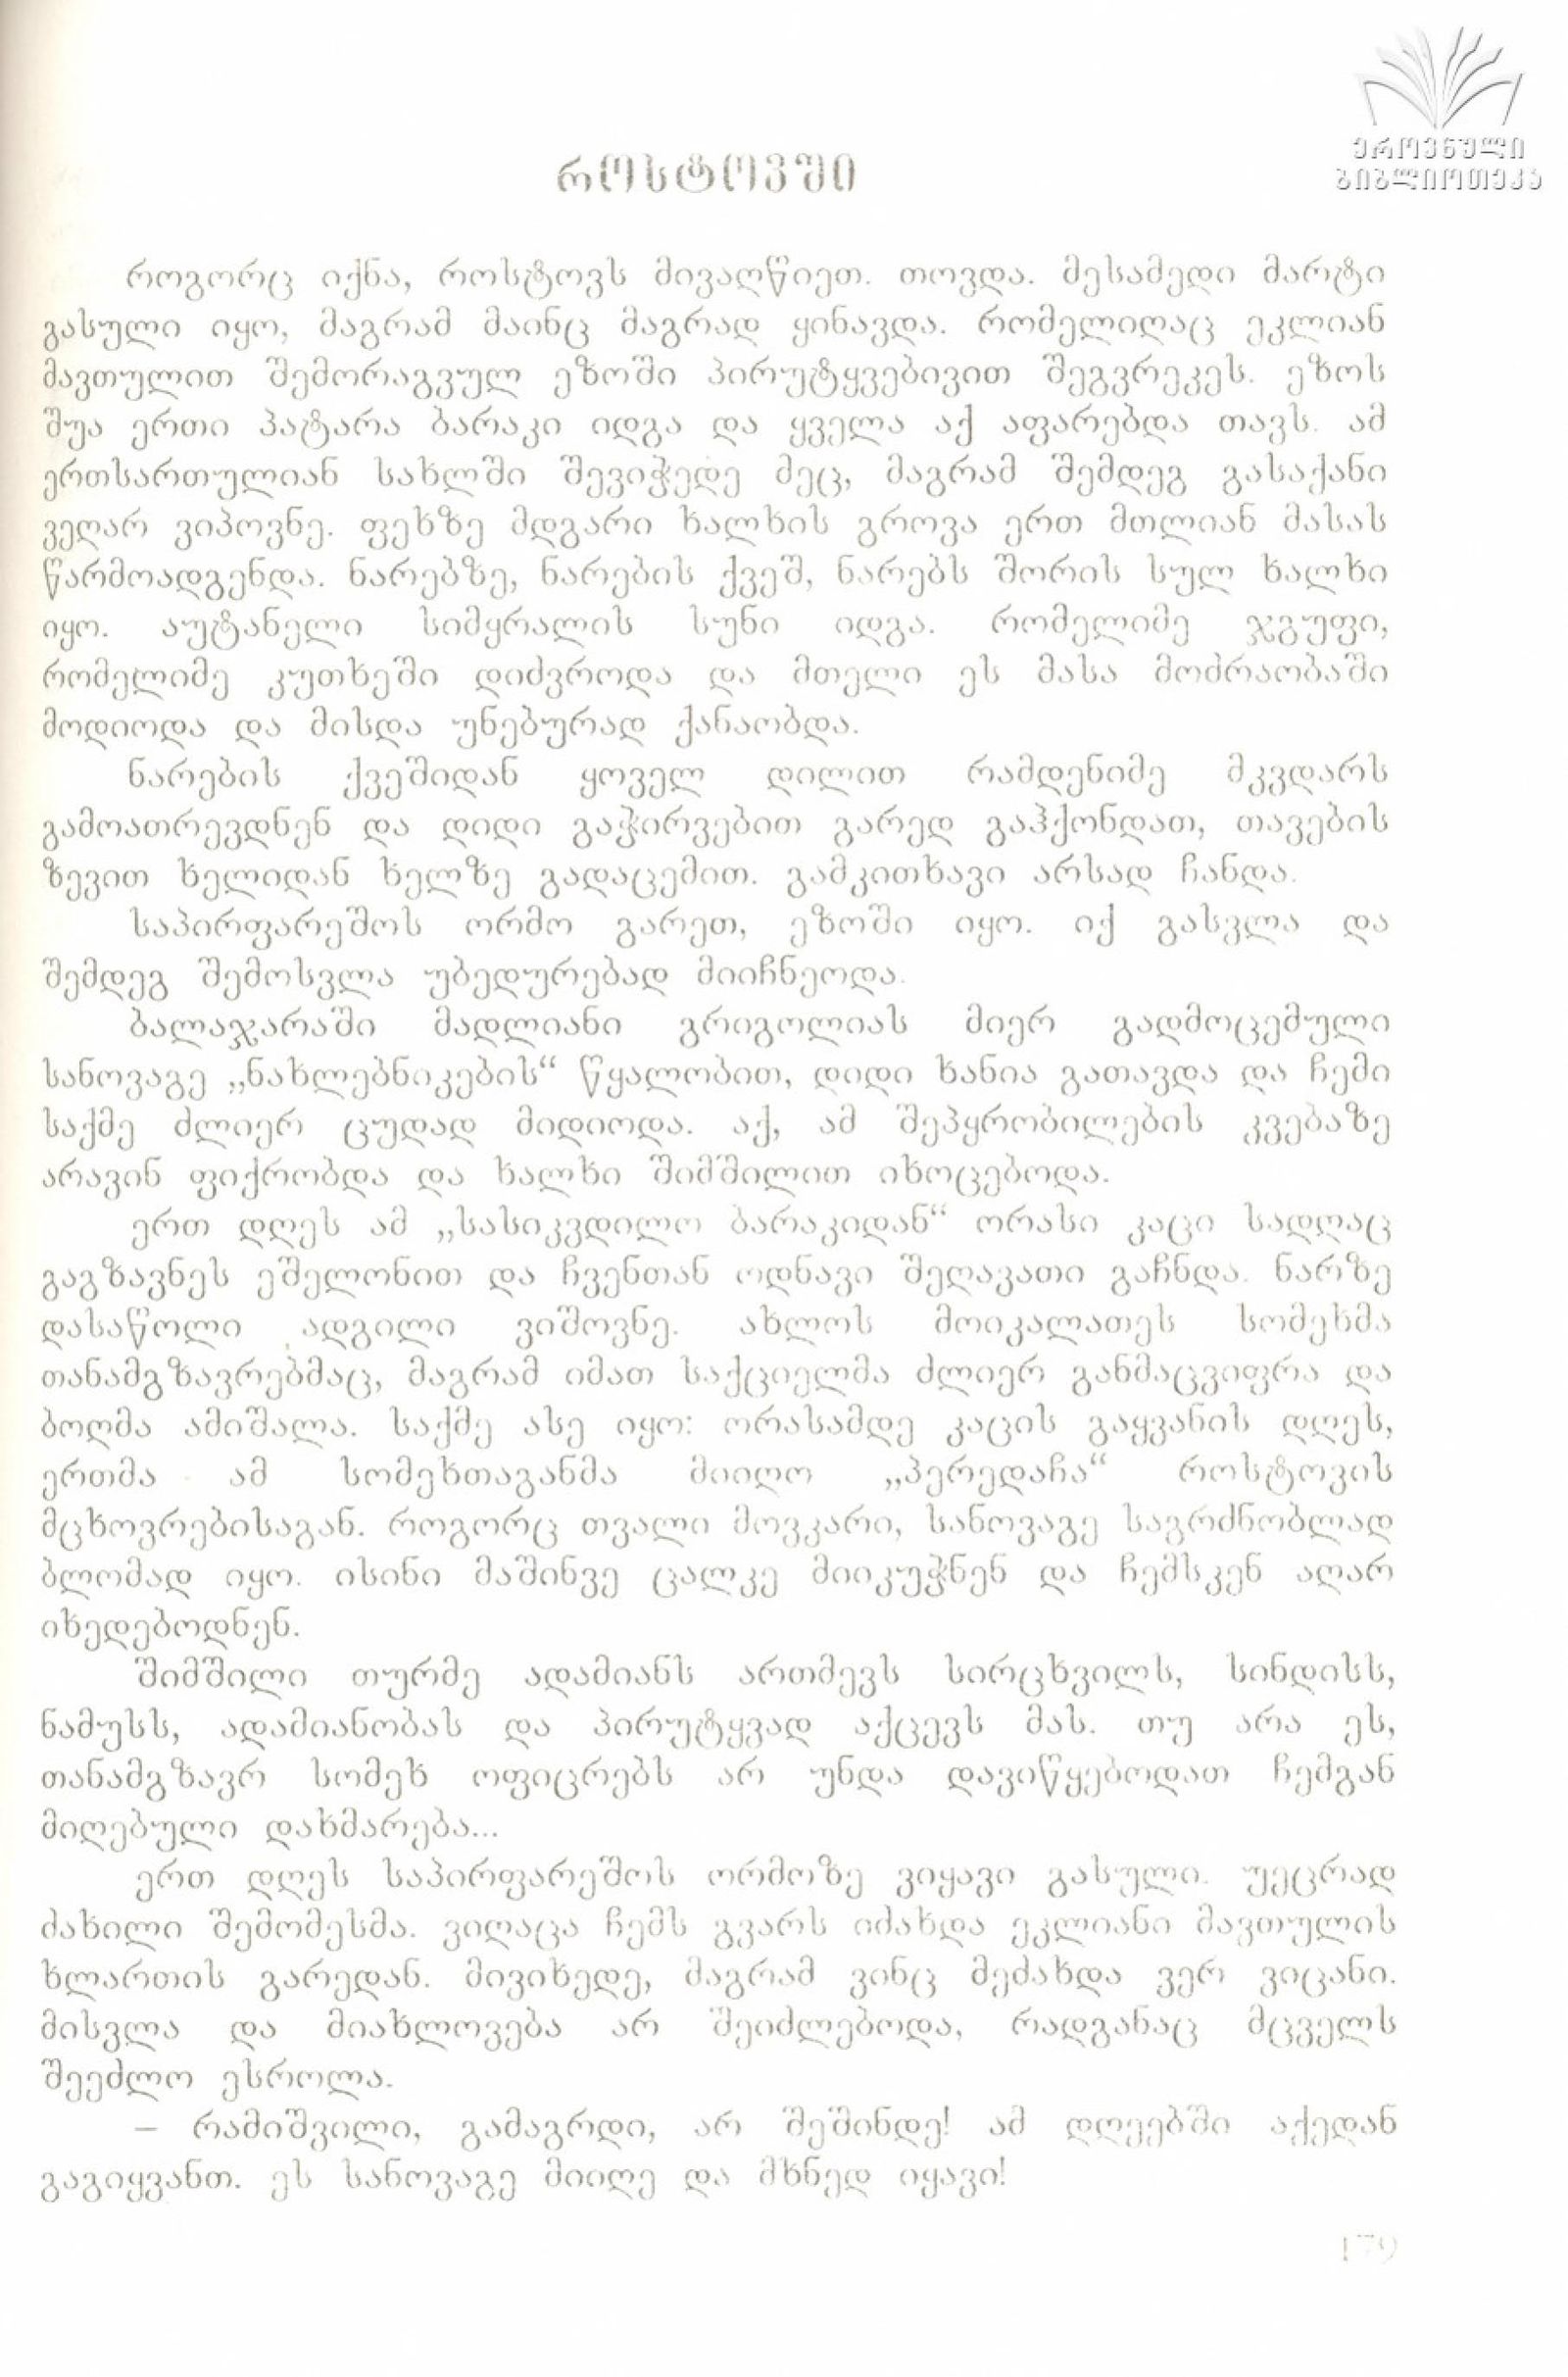 ეროვნული
ბიბლიოთეკა
როსტოვში
როგორც იქნა, როსტოვს მივაღწიეთ. თოვდა. მესამედი მარტი
გასული იყო, მაგრამ მაინც მაგრად ყინავდა. რომელიღაც ეკლიან
მავთულით შემორაგვულ ეზოში პირუტყვებივით შეგვრეკეს. ეზოს
შუა ერთი პატარა ბარაკი იდგა და ყველა აქ აფარებდა თავს. ამ
ერთსართულიან სახლში შევიჭედე მეც, მაგრამ შემდეგ გასაქანი
ვეღარ ვიპოვნე. ფეხზე მდგარი ხალხის გროვა ერთ მთლიან მასას
წარმოადგენდა. ნარებზე, ნარების ქვეშ, ნარებს შორის სულ ხალხი
იყო. აუტანელი სიმყრალის სუნი იდგა. რომელიმე ჯგუფი,
რომელიმე კუთხეში დიძვროდა და მთელი ეს მასა მოძრაობაში
მოდიოდა და მისდა უნებურად ქანაობდა.
ნარების ქვეშიდან ყოველ დილით რამდენიმე მკვდარს
გამოათრევდნენ და დიდი გაჭირვებით გარედ გაჰქონდათ, თავების
ზევით ხელიდან ხელზე გადაცემით. გამკითხავი არსად ჩანდა.
საპირფარეშოს ორმო გარეთ, ეზოში იყო. იქ გასვლა და
შემდეგ შემოსვლა უბედურებად მიიჩნეოდა.
ბალაჯარაში მადლიანი გრიგოლიას მიერ გადმოცემული
სანოვაგე „ნახლებნიკების“ წყალობით, დიდი ხანია გათავდა და ჩემი
საქმე ძლიერ ცუდად მიდიოდა. აქ, ამ შეპყრობილების კვებაზე
არავინ ფიქრობდა და ხალხი შიმშილით იხოცებოდა.
ერთ დღეს ამ „სასიკვდილო ბარაკიდან“ ორასი კაცი სადღაც
გაგზავნეს ეშელონით და ჩვენთან ოდნავი შეღავათი გაჩნდა. ნარზე
დასაწოლი ადგილი ვიშოვნე. ახლოს მოიკალათეს სომეხმა
თანამგზავრებმაც, მაგრამ იმათ საქციელმა ძლიერ განმაცვიფრა და
ბოღმა ამიშალა. საქმე ასე იყო: ორასამდე კაცის გაყვანის დღეს,
ერთმა ამ სომეხთაგანმა მიიღო „პერედაჩა“ როსტოვის
მცხოვრებისაგან. როგორც თვალი მოვკარი, სანოვაგე საგრძნობლად
ბლომად იყო. ისინი მაშინვე ცალკე მიიკუჭნენ და ჩემსკენ აღარ
იხედებოდნენ.
შიმშილი თურმე ადამიანს ართმევს სირცხვილს, სინდისს,
ნამუსს, ადამიანობას და პირუტყვად აქცევს მას. თუ არა ეს,
თანამგზავრ სომეხ ოფიცრებს არ უნდა დავიწყებოდათ ჩემგან
მიღებული დახმარება...
ერთ დღეს საპირფარეშოს ორმოზე ვიყავი გასული. უეცრად
ძახილი შემომესმა. ვიღაცა ჩემს გვარს იძახდა ეკლიანი მავთულის
ხლართის გარედან. მივიხედე, მაგრამ ვინც მეძახდა ვერ ვიცანი.
მისვლა და მიახლოვება არ შეიძლებოდა, რადგანაც მცველს
შეეძლო ესროლა.
– რამიშვილი, გამაგრდი, არ შეშინდე! ამ დღეებში აქედან
გაგიყვანთ. ეს სანოვაგე მიიღე და მხნედ იყავი!
179